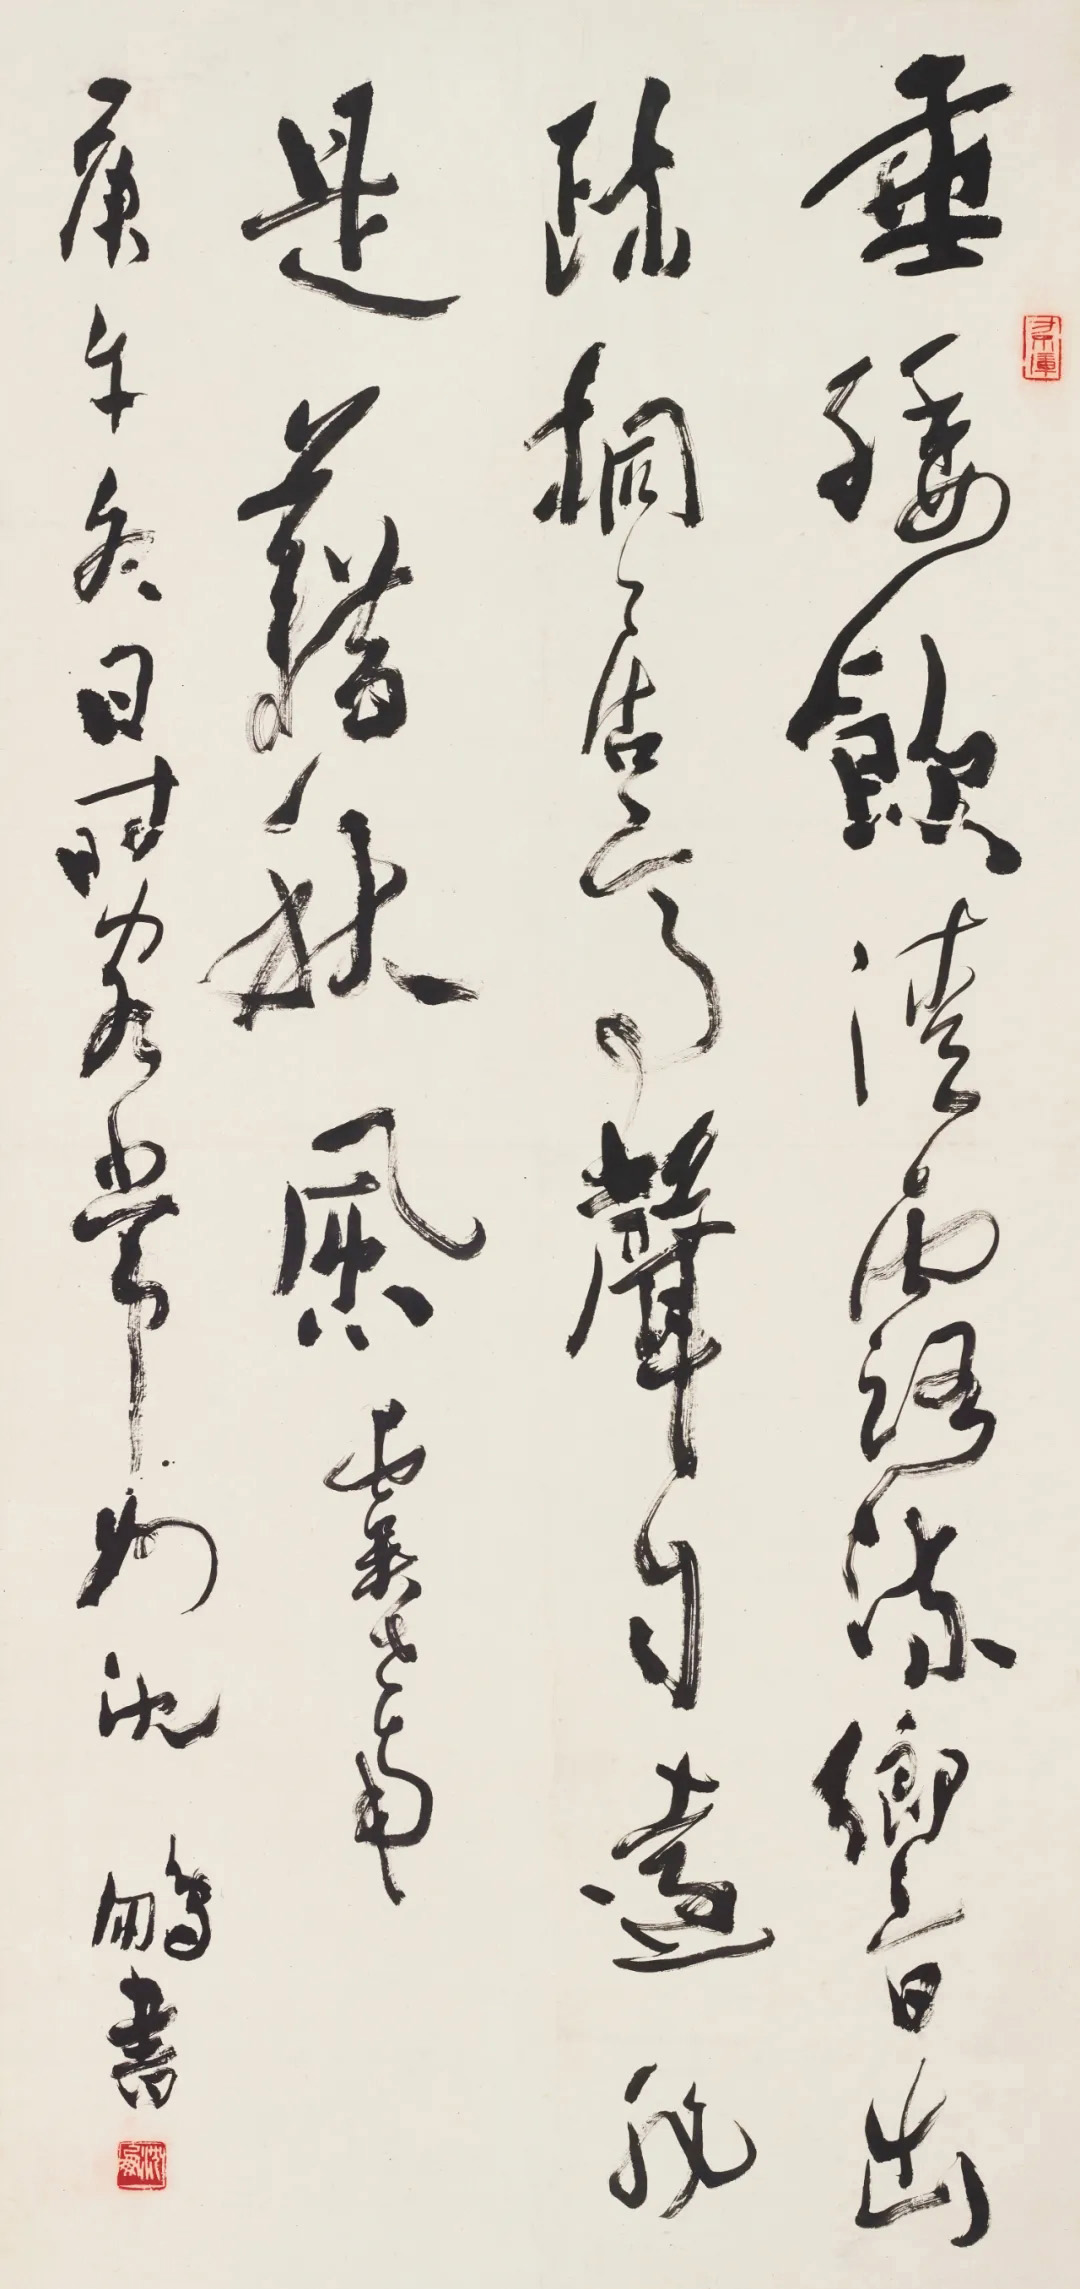 垂緌飲清露流響出
疎桐居高聲自遠非
是藉秋風虞世南
庚午冬日時客常州沈鵬書
沈鵬